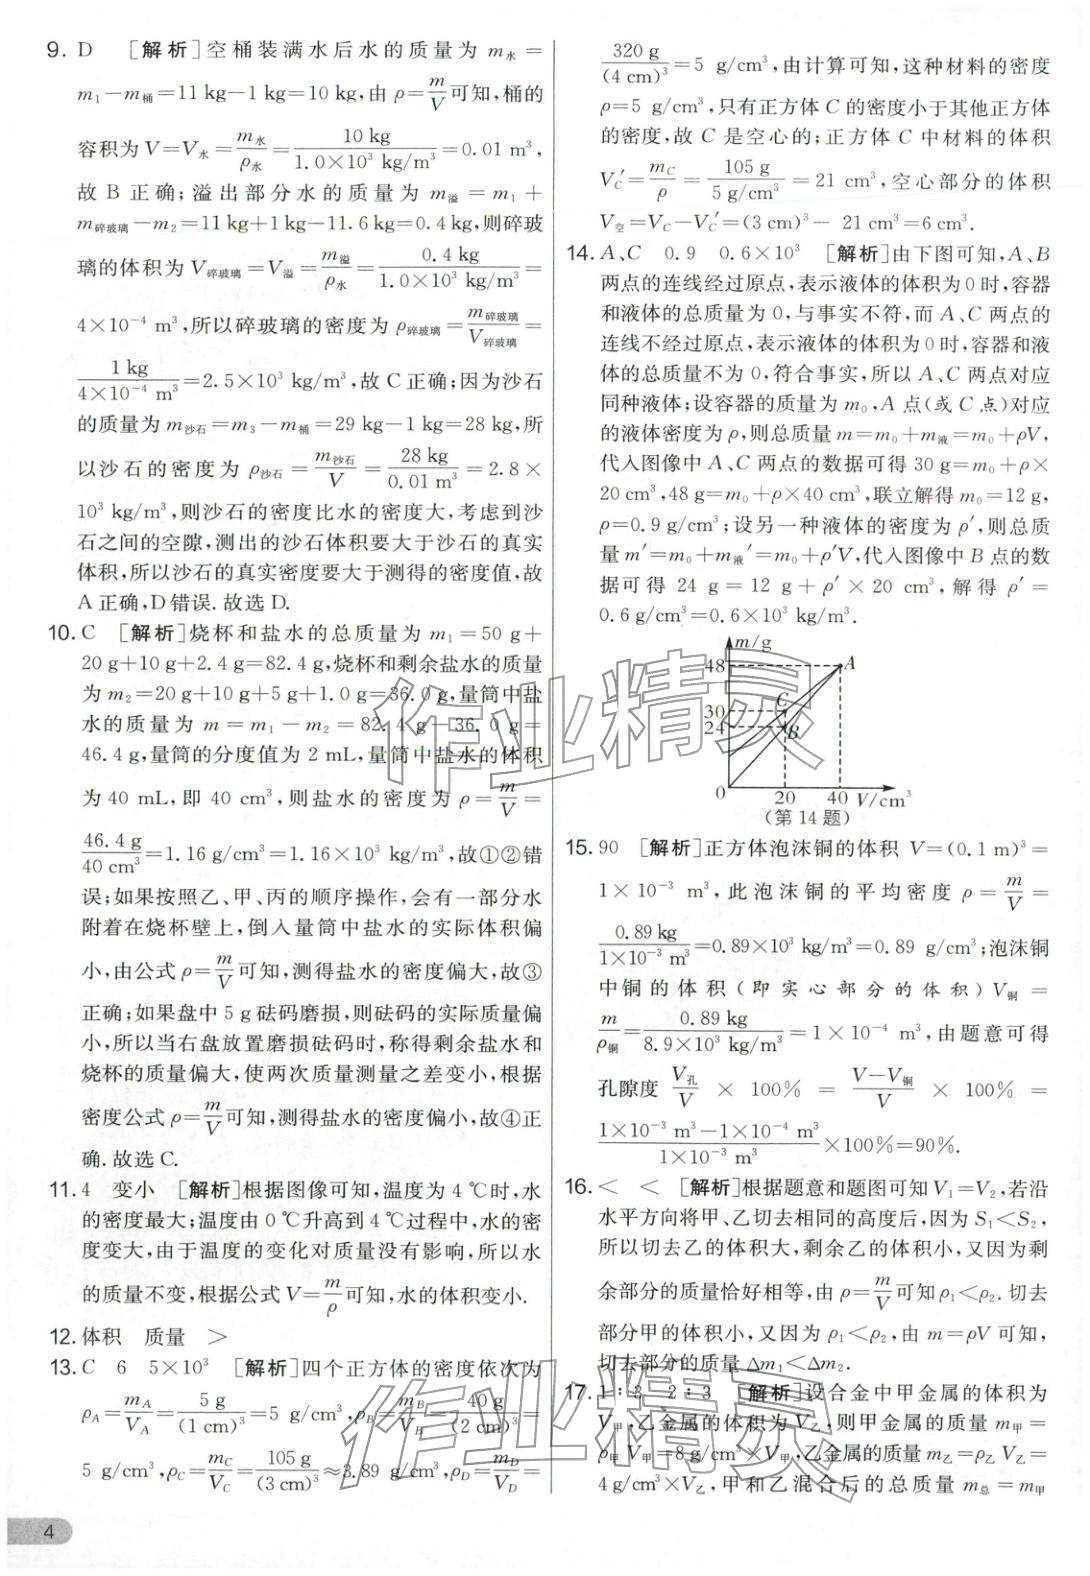 9. D [解析]空桶装满水后水的质量为 m水=
m₁-m桶=11 kg-1 kg=10 kg,由 ρ=m/V可知,桶的
容积为 V=V水=m水/ρ水=10 kg/(1.0×10³ kg/m³)=0.01 m³,
故 B 正确;溢出部分水的质量为 m溢=m₁+
m碎玻璃-m₂=11 kg+1 kg-11.6 kg=0.4 kg,则碎玻
璃的体积为 V碎玻璃=V溢=m溢/ρ水=0.4 kg/(1.0×10³ kg/m³)=
4×10⁻⁴ m³,所以碎玻璃的密度为 ρ碎玻璃=m碎玻璃/V碎玻璃=
1 kg/(4×10⁻⁴ m³)=2.5×10³ kg/m³,故 C 正确;因为沙石
的质量为 m沙石=m₃-m桶=29 kg-1 kg=28 kg,所
以沙石的密度为 ρ沙石=m沙石/V=28 kg/0.01 m³=2.8×
10³ kg/m³,则沙石的密度比水的密度大,考虑到沙
石之间的空隙,测出的沙石体积要大于沙石的真实
体积,所以沙石的真实密度要大于测得的密度值,故
A 正确,D 错误.故选 D.
10. C [解析]烧杯和盐水的总质量为 m₁=50 g+
20 g+10 g+2.4 g=82.4 g,烧杯和剩余盐水的质量
为 m₂=20 g+10 g+5 g+1.0 g=36.0 g,量筒中盐
水的质量为 m=m₁-m₂=82.4 g-36.0 g=
46.4 g,量筒的分度值为 2 mL,量筒中盐水的体积
为 40 mL,即 40 cm³,则盐水的密度为 ρ=m/V=
46.4 g/40 cm³=1.16 g/cm³=1.16×10³ kg/m³,故①②错
误;如果按照乙、甲、丙的顺序操作,会有一部分水
附着在烧杯壁上,倒入量筒中盐水的实际体积偏
小,由公式 ρ=m/V可知,测得盐水的密度偏大,故③
正确;如果盘中 5 g砝码磨损,则砝码的实际质量偏
小,所以当右盘放置磨损砝码时,称得剩余盐水和
烧杯的质量偏大,使两次质量测量之差变小,根据
密度公式 ρ=m/V可知,测得盐水的密度偏小,故④正
确.故选 C.
11. 4 变小 [解析]根据图像可知,温度为 4 ℃时,水
的密度最大;温度由 0 ℃升高到 4 ℃过程中,水的密
度变大,由于温度的变化对质量没有影响,所以水
的质量不变,根据公式 V=m/ρ可知,水的体积变小.
12. 体积 质量 >
13. C 6 5×10³ [解析]四个正方体的密度依次为
ρA=mA/VA=5 g/(1 cm)³=5 g/cm³,ρB=mB/VB=40 g/(2 cm)³=
5 g/cm³,ρC=mC/VC=105 g/(3 cm)³≈3.89 g/cm³,ρD=mD/VD=
4
320 g/(4 cm)³=5 g/cm³,由计算可知,这种材料的密度
ρ=5 g/cm³,只有正方体 C 的密度小于其他正方体
的密度,故 C 是空心的;正方体 C 中材料的体积
VC′=mC/ρ=105 g/(5 g/cm³)=21 cm³,空心部分的体积
V空=VC-VC′=(3 cm)³-21 cm³=6 cm³.
14. A、C 0.9 0.6×10³ [解析]由下图可知,A、B
两点的连线经过原点,表示液体的体积为 0 时,容器
和液体的总质量为 0,与事实不符,而 A、C 两点的
连线不经过原点,表示液体的体积为 0 时,容器和液
体的总质量不为 0,符合事实,所以 A、C 两点对应
同种液体;设容器的质量为 m₀,A 点(或 C 点)对应
的液体密度为 ρ,则总质量 m=m₀+m液=m₀+ρV,
代入图像中 A、C 两点的数据可得 30 g=m₀+ρ×
20 cm³,48 g=m₀+ρ×40 cm³,联立解得 m₀=12 g,
ρ=0.9 g/cm³;设另一种液体的密度为 ρ′,则总质
量 m′=m₀+m液′=m₀+ρ′V,代入图像中 B 点的数
据可得 24 g=12 g+ρ′×20 cm³,解得 ρ′=
0.6 g/cm³=0.6×10³ kg/m³.
m/g
48
A
30
C
24
B
0 20 40 V/cm³
(第 14 题)
15. 90 [解析]正方体泡沫铜的体积 V=(0.1 m)³=
1×10⁻³ m³,此泡沫铜的平均密度 ρ=m/V=
0.89 kg/(1×10⁻³ m³)=0.89×10³ kg/m³=0.89 g/cm³;泡沫铜
中铜的体积(即实心部分的体积)V铜=
m/ρ铜=0.89 kg/(8.9×10³ kg/m³)=1×10⁻⁴ m³,由题意可得
孔隙度 V孔/V×100%=(V-V铜)/V×100%=
(1×10⁻³ m³-1×10⁻⁴ m³)/(1×10⁻³ m³)×100%=90%.
16. < < [解析]根据题意和题图可知 V₁=V₂,若沿
水平方向将甲、乙切去相同的高度后,因为 S₁<S₂,
所以切去乙的体积大,剩余乙的体积小,又因为剩
余部分的质量恰好相等,由 ρ=m/V可知 ρ₁<ρ₂.切去
部分甲的体积小,又因为 ρ₁<ρ₂,由 m=ρV 可知,
切去部分的质量 Δm₁<Δm₂.
17. 1∶3 2∶3 [解析]设合金中甲金属的体积为
V甲,乙金属的体积为 V乙,则甲金属的质量 m甲=
ρ甲 V甲=8 g/cm³×V甲,乙金属的质量 m乙=ρ乙 V乙=
4 g/cm³×V乙,甲和乙混合后的总质量 m总=m甲
作业精灵
作业精灵